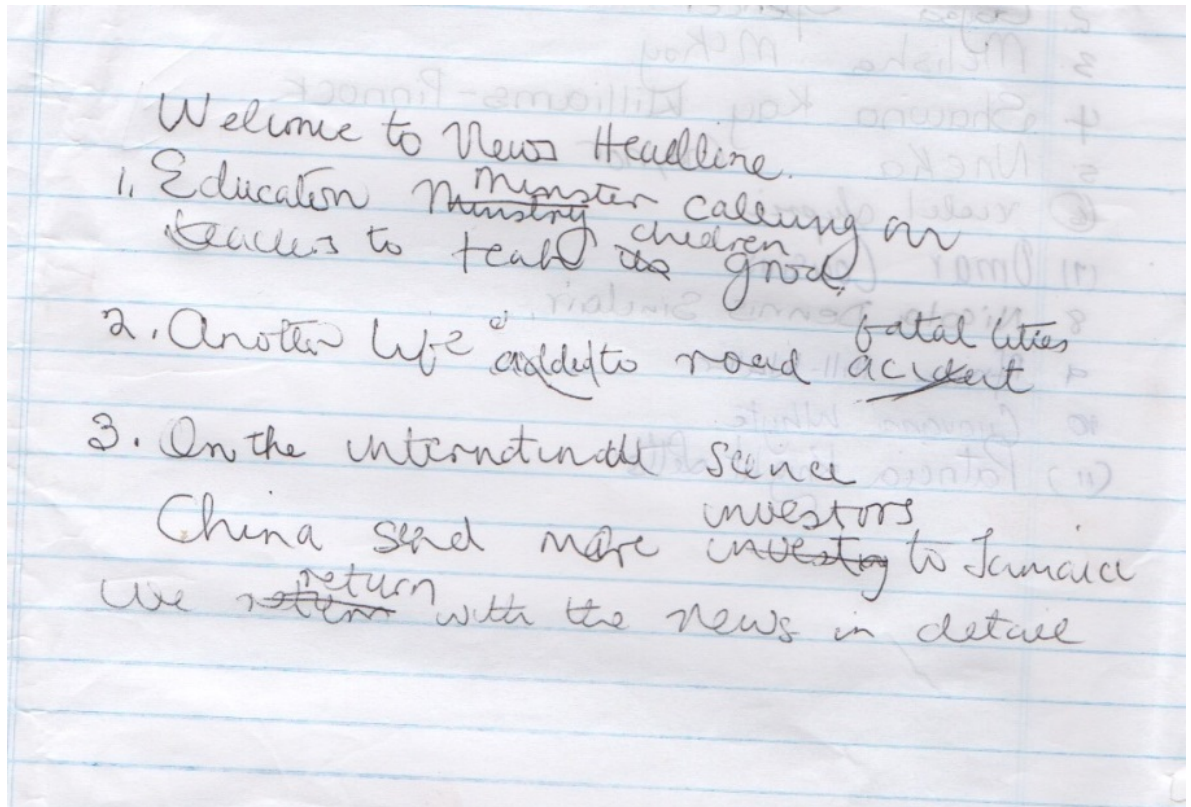 Welcome to News Headline.
1. Education Minister calling on
teachers to teach children good.
2. Another life added to road fatalities
3. On the international scence
China send more investors to Jamaica
We return with the news in detail